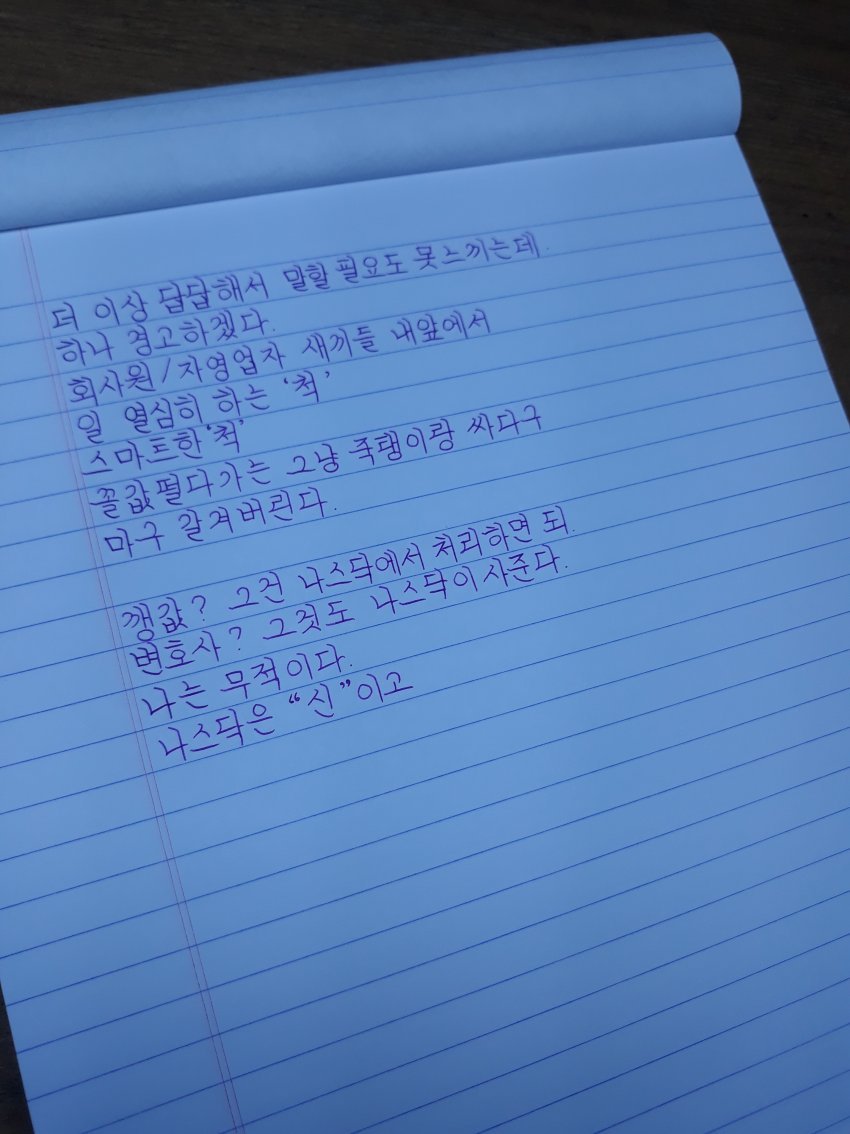 더 이상 답답해서 말할 필요도 못느끼는데.
하나 경고하겠다.
회사원/자영업자 새끼들 내앞에서
일 열심히 하는 '척'
스마트한 '척'
꼴값떨다가는 그냥 죽탱이랑 싸다구
마구 갈겨버린다.
깽값? 그건 나스닥에서 처리하면 되.
변호사? 그것도 나스닥이 사준다.
나는 무적이다.
나스닥은 "신"이고